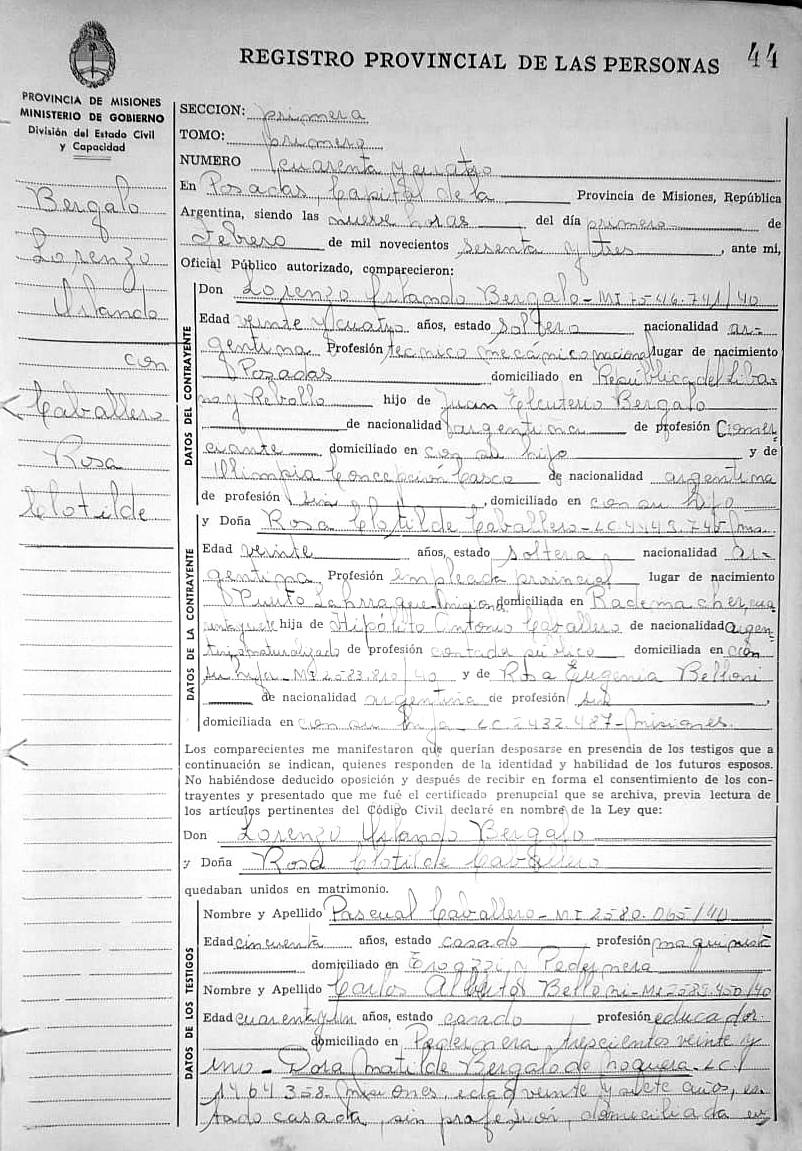 REGISTRO PROVINCIAL DE LAS PERSONAS 44
PROVINCIA DE MISIONES
MINISTERIO DE GOBIERNO
División del Estado Civil
y Capacidad
Bergalo
Lorenzo
Orlando
con
Caballero
Rosa
Clotilde
SECCION: primera
TOMO: primero
NUMERO cuarenta y cuatro
En Posadas, Capital de la Provincia de Misiones, República
Argentina, siendo las nueve horas del día primero de
Febrero de mil novecientos sesenta y tres, ante mi,
Oficial Público autorizado, comparecieron:
DATOS DEL CONTRAYENTE
Don Lorenzo Orlando Bergalo - MI 7546.741/40
Edad veinte y cuatro años, estado soltero nacionalidad ar-
gentina Profesión técnico mecánico nacional lugar de nacimiento
Posadas domiciliado en República del Liba-
no y Rebollo hijo de Juan Eleuterio Bergalo
de nacionalidad argentina de profesión Comer-
ciante domiciliado en con su hijo y de
Olimpia Concepción Casco de nacionalidad argentina
de profesión sin, domiciliado en con su hijo
DATOS DE LA CONTRAYENTE
y Doña Rosa Clotilde Caballero - LC.4443.745
Edad veinte años, estado soltera nacionalidad ar-
gentina Profesión empleada provincial lugar de nacimiento
Puerto domiciliada en Rademacher, cua
hija de Hipólito Antonio Caballero de nacionalidad argen-
naturalizado de profesión público domiciliada en con
su hija - MI 2583.810/40 y de Rosa Eugenia Belloni
de nacionalidad argentina de profesión sin,
domiciliada en con su hija - LC.2432.487 - Misiones.
Los comparecientes me manifestaron que querían desposarse en presencia de los testigos que a
continuación se indican, quienes responden de la identidad y habilidad de los futuros esposos.
No habiéndose deducido oposición y después de recibir en forma el consentimiento de los con-
trayentes y presentado que me fué el certificado prenupcial que se archiva, previa lectura de
los artículos pertinentes del Código Civil declaré en nombre de la Ley que:
Don Lorenzo Orlando Bergalo
y Doña Rosa Clotilde Caballero
quedaban unidos en matrimonio.
DATOS DE LOS TESTIGOS
Nombre y Apellido Pascual Caballero - MI 2580.065/40
Edad cincuenta años, estado casado profesión maquinista
domiciliado en y Pedernera
Nombre y Apellido Carlos Alberto Belloni - MI 2589.450/40
Edad cuarenta y un años, estado casado profesión educador
domiciliado en Pedernera trescientos veinte y
uno - Dora Matilde Bergalo de Noguera - LC.
1464358. Misiones, edad veinte y siete años, es
tado casada, sin profesión, domiciliada en